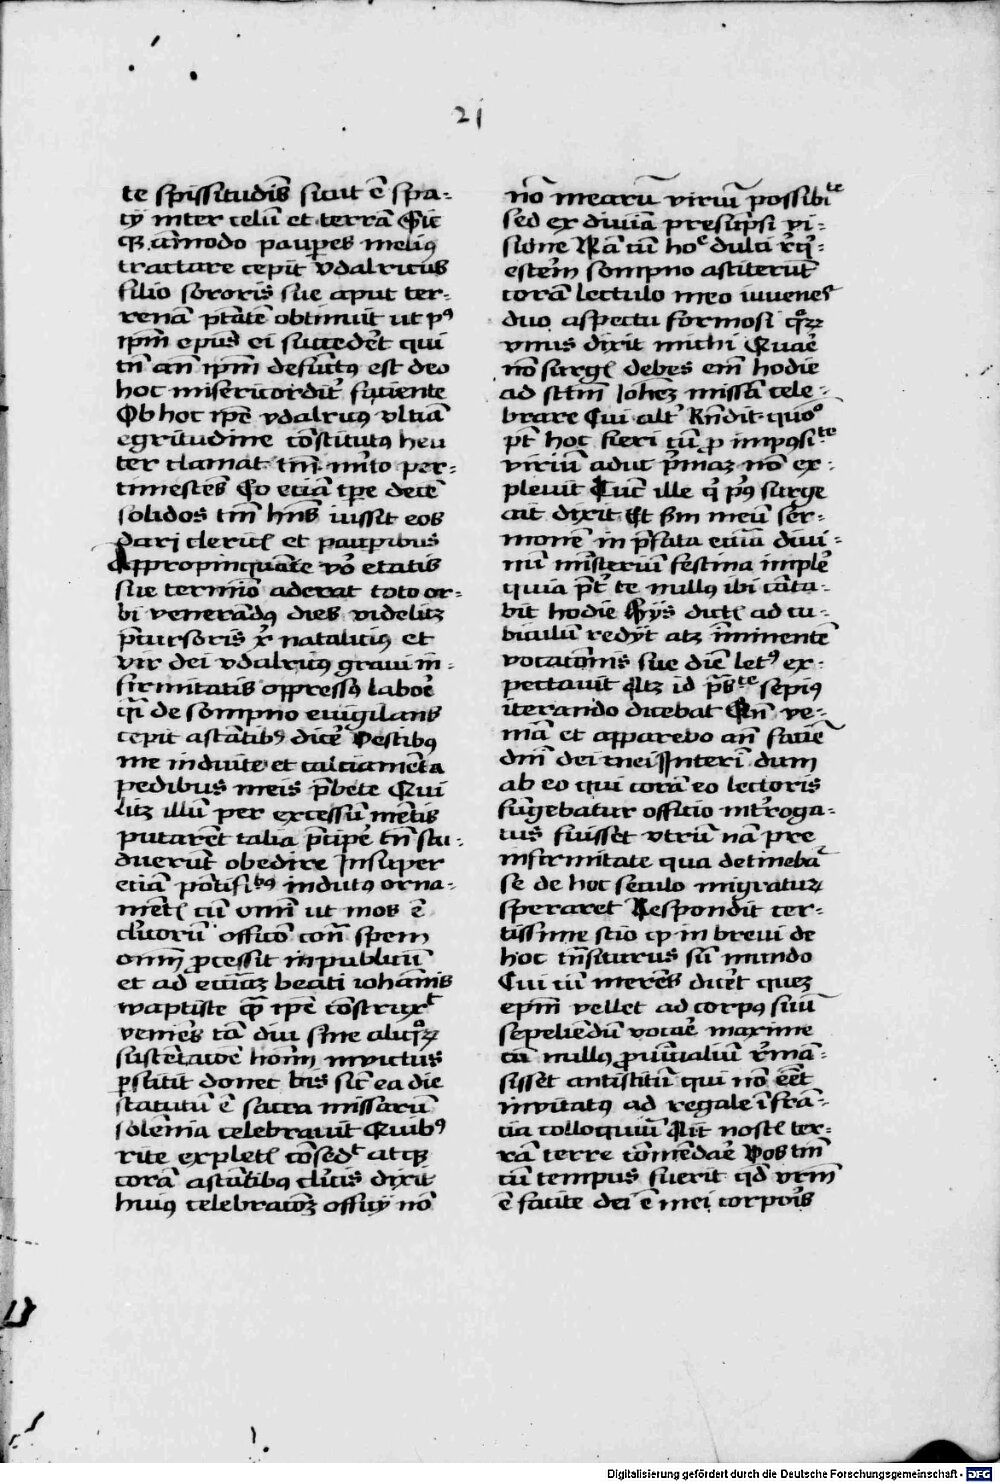 21
te spissitudīs sicut ē spa-
cÿ inter celū et terrā Sic
qꝫ āmodo pauꝑes meliꝰ
tractare cepit vdalricus
filio sororis sue aput ter-
renā ptātē obtinuit ut pꝰ
ip̄m ep̄us ei succed'et qui
tn̄ an̄ ip̄m defunctꝰ est deo
hoc misericordit' faciente
Ob hoc ip̄e vdalricꝰ vltīa
egritudine cōstitutus heu
ter clamat tn̄ mīto per-
timestens Eo eciā tp̄e decē
solidos tm̄ hn̄s iussit eos
dari cleric̄ et pauꝑibus
Appropinquāte v̄o etatis
sue termīo aderat toto or-
bi venerādꝰ dies videlicꝫ
p̄cursoris xp̄i nataliciꝰ et
vir dei vdalricꝰ graui in-
firmitatis oppressꝰ laboē
q̄i de sompno euigilans
cepit astātibꝰ dicē Vestibꝰ
me induite et calciamēta
pedibus meis p̄bete Qui
licꝫ illū per excessū mētis
putarēt talia p̄cipē tn̄ stu-
duerūt obedire Insuper
eciā pōtificibꝰ indutꝰ orna-
mēt̄ cū om̄i ut mos ē
cl'icorū officō cont̄ spem
om̄i ꝓcessit in publicū
et ad eccīaꝫ beati iohānis
waptiste qm̄ ip̄e cōstruxt
veniēs tā diu sine aliqꝰꝝ
sustētacōe hom̄ invictus
ꝑstitit donec bis sic̄ ea die
statutū ē sacra missarū
solēnia celebrauit Quibꝰ
rite explet̄ cōsedt atqꝫ
corā astātibꝰ cl'icis dixit
huiꝰ celebracōꝫ officÿ nō
nō mearū viriū possibite
sed ex diuīa presūpsi vi-
sione Nā cū hoc dulci r̄q-
estem sompno astiterūt
corā lectulo meo iuuenes
duo aspectu formosi qꝰꝝ
vnus dixit michi Quāe
nō surḡ debes em̄ hodie
ad sct̄m Johēꝫ missā cele-
brare Cui alt' Rn̄dit quō
pt̄ hoc fieri cū ꝓ impꝰsite
viriū aduc p̄maꝫ nō ex-
pleuit Tūc ille q̄ pꝰ surge
ait dixit Et sm̄ meū ser-
monē in p̄fata eccīa diui-
nū mīsteriū festina implē
quia p̄t' te nullꝰ ibi cāta-
bit hodie Hijs dict̄ ad cu-
biculū redÿt atꝫ īminentē
vocatōnis sue diē letꝰ ex-
pectauit Atꝫ id p̄ste sepiꝰ
iterando dicebat En̄ ve-
niā et apparebo an̄ faciē
dn̄i dei mei Interī dum
ab eo qui corā eo lectoris
fūgebatur officio int'roga-
tus fuisset vtrū nā pre
infirmitate qua detinebāt
se de hoc seculo migraturꝝ
speraret Respondit cer-
tissime scio ꝙ in breui de
hoc trn̄siturus sū mundo
Cui cū merēs dicēt queꝫ
ep̄m vellet ad corpꝰ suū
sepeliēdū vocāe maxime
cū nullꝰ ꝓuīcialiū r̄mā-
sisset antistitū qui nō eēt
invitatꝰ ad regale ī frā-
cia colloquiū Ait nost̄ ter-
rā terre cōmēdāe Vos tn̄
cū tempus fuerit qd̄ vr̄m
ē facite dei ē mei corporis
13
Digitalisierung gefördert durch die Deutsche Forschungsgemeinschaft - DFG